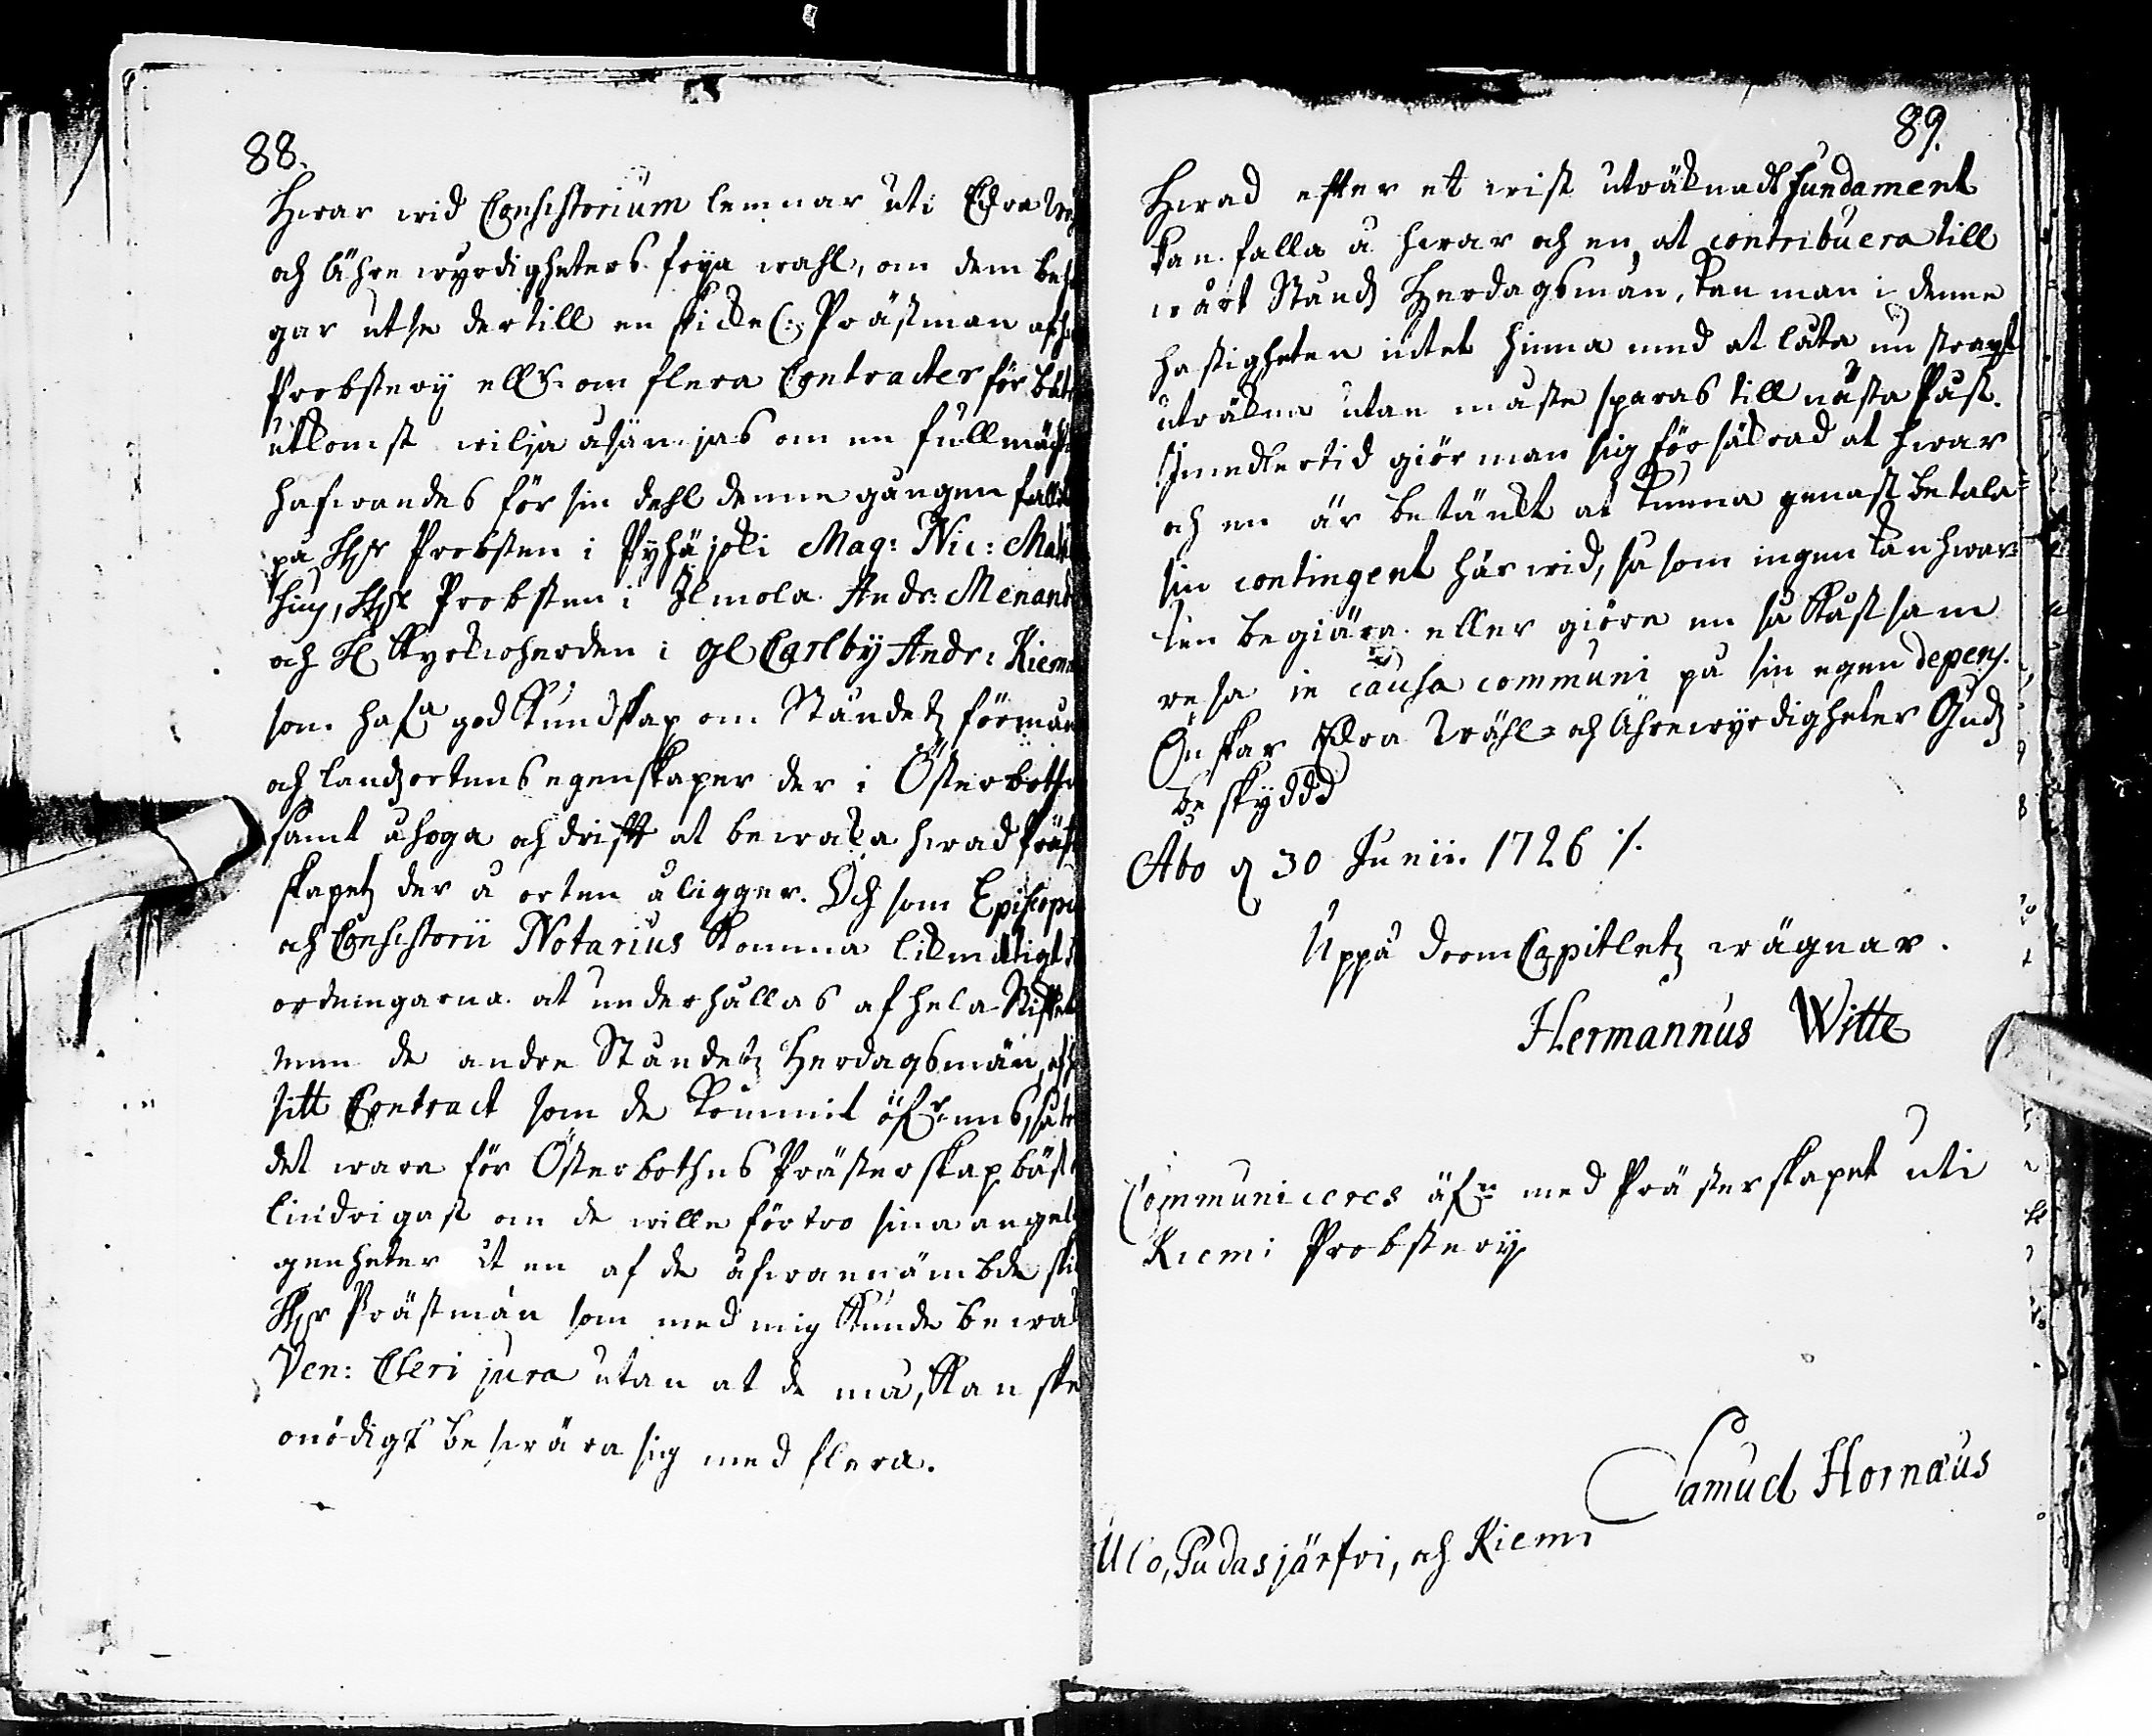 88.
Hwar wid Consistorium lemnar uti Edra
och Ährewyrdigheters frija wahl, om dem beha
gar utse dertill en skickel: Prästman af hw
Probstery ell:r om flera Contracter för bätt
utkomst wilja åsämjas om en fullmächt
hafwandes för sin dehl denne gången fallit
på H:r Probsten i Pyhäjoki Mag: Nic: Mat
hiæ, H:r Probsten i Ilmola Andr: Menand
och H: Kyrkioherden i Gl Carlby Andr: Kiem
som hafa god kundskap om Ståndetz förmån
och landzortens egenskaper der i Österbothn
samt åhoga och drifft at bewaka hwad Präst
skapetz der å orten åligger. Och som Episcopu
och Consistorii Notarius komma likmätigt
ordningarna at underhållas af hela Stiftet
men de andre Ståndetz Herdagsmän, af
sitt Contract som de kommit öf:rens, så tor
det ware för Österbothns Prästerskap bäst
lindrigast om de wille förtro sina angelä
genheter åt en af de åfwannämbde ski
H:r Prästmän som med mig kunde bewak
Ven: Cleri jura utan at de må, kan ske
onödigt beswära sig med flera.
89.
Hwad efter et wist uträknadt fundament
kan falla å hwar och en, at contribuera till
wårt Stånds Herdagsmän, kan man i denne
hastigheten intet hinna med at låta nu strax
uträkna utan måste sparas till nästa Påst.
Imedlertid giör man sig försäkrad at hwar
och en är betänkt at kunna genast betala
sin contingent här wid, så som ingen kan hwar
ken begiära eller giöra en så kåstsam
resa in causa communi på sin egen depens.
Önskar Edra Wähl- och Ährewyrdigheter Gudz
beskydd
Abo d 30 Junii. 1726 ./.
Uppå DomCapitletz wägnar.
Hermannus Witte
Communiceres äf:n med Prästerskapet uti
Kiemi Probstery
Samuel Hornæus
Ulo, Pudasjärfvi, och Kiemi